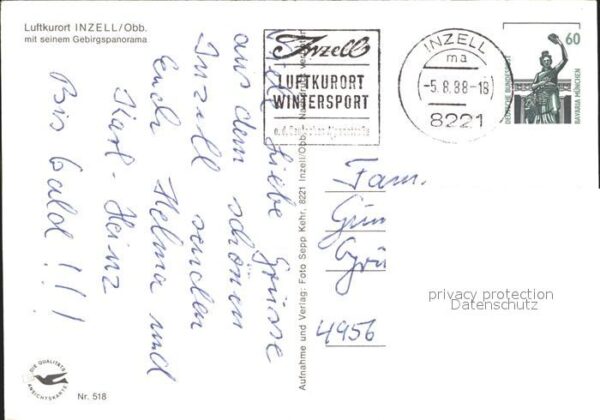 Luftkurort INZELL/Obb.
mit seinem Gebirgspanorama
Viele liebe Grüsse
aus dem schönen
Inzell senden
Euch Helma und
Karl-Heinz
Bis bald!!!
DIE QUALITÄTS
ANSICHTSKARTE
Nr. 518
Aufnahme und Verlag: Foto Sepp Kehr, 8221 Inzell/Obb.
Inzell
LUFTKURORT
WINTERSPORT
a. d. Deutschen Alpenstraße
INZELL
ma
-5.8.88-18
8221
60
DEUTSCHE BUNDESPOST
BAVARIA MÜNCHEN
Fam.
Gün
Grü
4956
privacy protection
Datenschutz